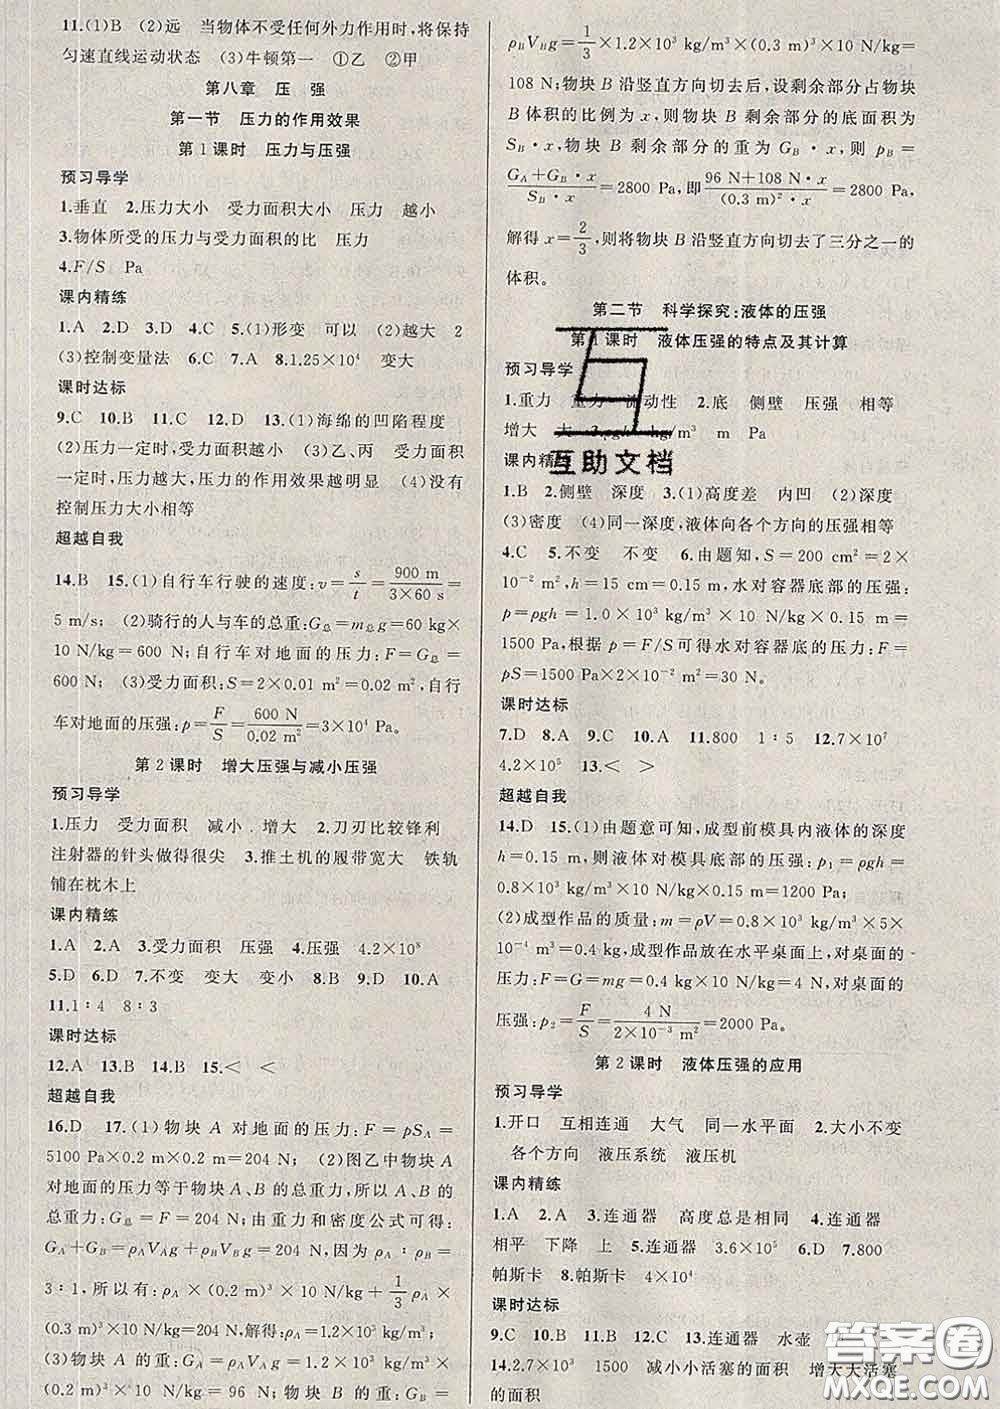 11.(1)B (2)远 当物体不受任何外力作用时,将保持
匀速直线运动状态 (3)牛顿第一 ①乙 ②甲
第八章 压 强
第一节 压力的作用效果
第1课时 压力与压强
预习导学
1.垂直 2.压力大小 受力面积大小 压力 越小
3.物体所受的压力与受力面积的比 压力
4.F/S Pa
课内精练
1.A 2.D 3.D 4.C 5.(1)形变 可以 (2)越大 2
(3)控制变量法 6.C 7.A 8.1.25×10⁴ 变大
课时达标
9.C 10.B 11.C 12.D 13.(1)海绵的凹陷程度
(2)压力一定时,受力面积越小 (3)乙、丙 受力面积
一定时,压力越大,压力的作用效果越明显 (4)没有
控制压力大小相等
超越自我
14.B 15.(1)自行车行驶的速度:v=s/t=900 m/3×60 s=
5 m/s; (2)骑行的人与车的总重:G总=m总g=60 kg×
10 N/kg=600 N; 自行车对地面的压力:F=G总=
600 N; (3)受力面积:S=2×0.01 m²=0.02 m²,自行
车对地面的压强:p=F/S=600 N/0.02 m²=3×10⁴ Pa。
第2课时 增大压强与减小压强
预习导学
1.压力 受力面积 减小 增大 2.刀刃比较锋利
注射器的针头做得很尖 3.推土机的履带宽大 铁轨
铺在枕木上
课内精练
1.A 2.A 3.受力面积 压强 4.压强 4.2×10⁸
5.D 6.D 7.不变 变大 变小 8.B 9.D 10.A
11.1∶4 8∶3
课时达标
12.A 13.B 14.B 15.< <
超越自我
16.D 17.(1)物块 A 对地面的压力:F=pSA=
5100 Pa×0.2 m×0.2 m=204 N; (2)图乙中物块 A
对地面的压力等于物块 A、B 的总重力,所以 A、B 的总
重力:G总=F=204 N;由重力和密度公式可得:
GA+GB=ρAVAg+ρBVBg=204 N,因为 ρA∶ρB=
3∶1,所以有:ρA×(0.2 m)³×10 N/kg+1/3ρA×
(0.3 m)³×10 N/kg=204 N,解得:ρA=1.2×10³ kg/m³;
(3)物块 A 的重:GA=ρAVAg=1.2×10³ kg/m³×
(0.2 m)³×10 N/kg=96 N; 物块 B 的重:GB=
ρBVBg=1/3×1.2×10³ kg/m³×(0.3 m)³×10 N/kg=
108 N;物块 B 沿竖直方向切去后,设剩余部分占物块
B 体积的比例为 x,则物块 B 剩余部分的底面积为
SB·x,物块 B 剩余部分的重为 GB·x,则 pB=
GA+GB·x/SB·x=2800 Pa,即96 N+108 N·x/(0.3 m)²·x=2800 Pa,
解得 x=2/3,则将物块 B 沿竖直方向切去了三分之一的
体积。
第二节 科学探究:液体的压强
第1课时 液体压强的特点及其计算
预习导学
1.重力 重力 流动性 2.底 侧壁 压强 相等
增大 大 3.ρgh kg/m³ m Pa
课内精练
1.B 2.侧壁 深度 3.(1)高度差 内凹 (2)深度
(3)密度 (4)同一深度,液体向各个方向的压强相等
4.C 5.不变 不变 6.由题知,S=200 cm²=2×
10⁻² m²,h=15 cm=0.15 m,水对容器底部的压强:
p=ρgh=1.0×10³ kg/m³×10 N/kg×0.15 m=
1500 Pa,根据 p=F/S可得水对容器底部的压力:F=
pS=1500 Pa×2×10⁻² m²=30 N。
课时达标
7.D 8.A 9.C 10.A 11.800 1∶5 12.7×10⁷
4.2×10⁵ 13.< >
超越自我
14.D 15.(1)由题意可知,成型前模具内液体的深度
h=0.15 m,则液体对模具底部的压强:p₁=ρgh=
0.8×10³ kg/m³×10 N/kg×0.15 m=1200 Pa;
(2)成型作品的质量:m=ρV=0.8×10³ kg/m³×5×
10⁻⁴ m³=0.4 kg,成型作品放在水平桌面上,对桌面的
压力:F=G=mg=0.4 kg×10 N/kg=4 N,对桌面的
压强:p₂=F/S=4 N/2×10⁻³ m²=2000 Pa。
第2课时 液体压强的应用
预习导学
1.开口 互相连通 大气 同一水平面 2.大小不变
各个方向 液压系统 液压机
课内精练
1.A 2.A 3.连通器 高度总是相同 4.连通器
相平 下降 上 5.连通器 3.6×10⁵ 6.D 7.800
帕斯卡 8.帕斯卡 4×10⁴
课时达标
9.C 10.B 11.B 12.C 13.连通器 水壶
14.2.7×10³ 1500 减小小活塞的面积 增大大活塞
的面积
互助文档
答案圈
MXQE.COM